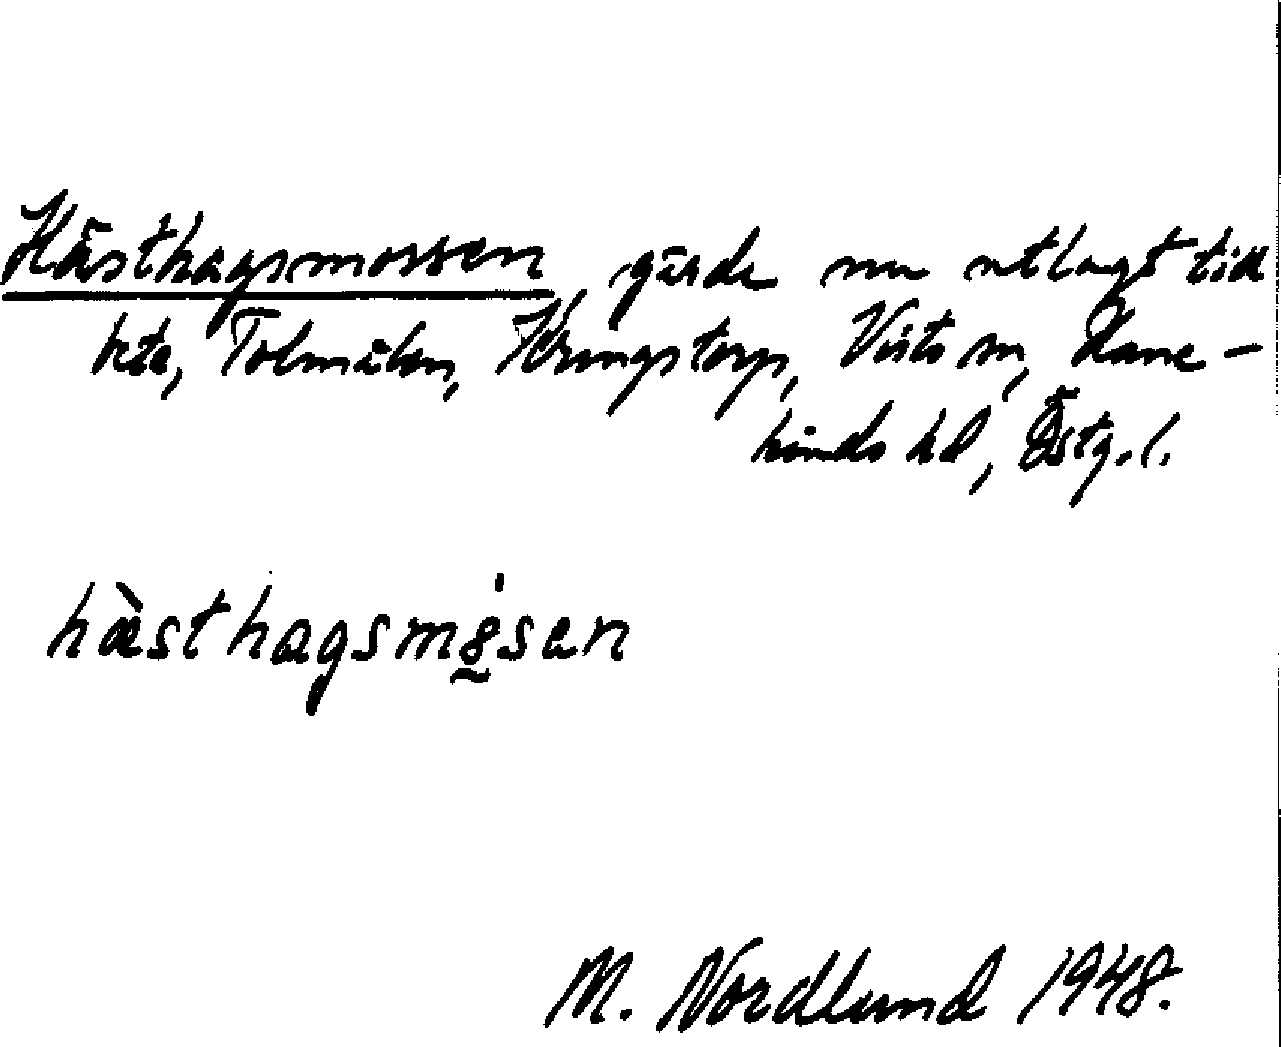 Hästhagsmossen, gärde nu utlagt till
bete, Tolmålen, Kringstorp, Vists sn, Hane-
kinds hd, Östg. l.
hästhagsmosen
M. Nordlund 1948.